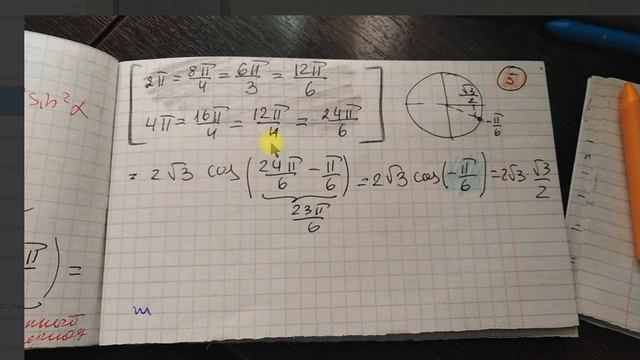 sin²α
2π = 8π/4 = 6π/3 = 12π/6
4π = 16π/4 = 12π/4 = 24π/6
5
√3/2
-π/6
= 2√3 cos(24π/6 - π/6) = 2√3 cos(-π/6) = 2√3·√3/2
23π/6
) =
m